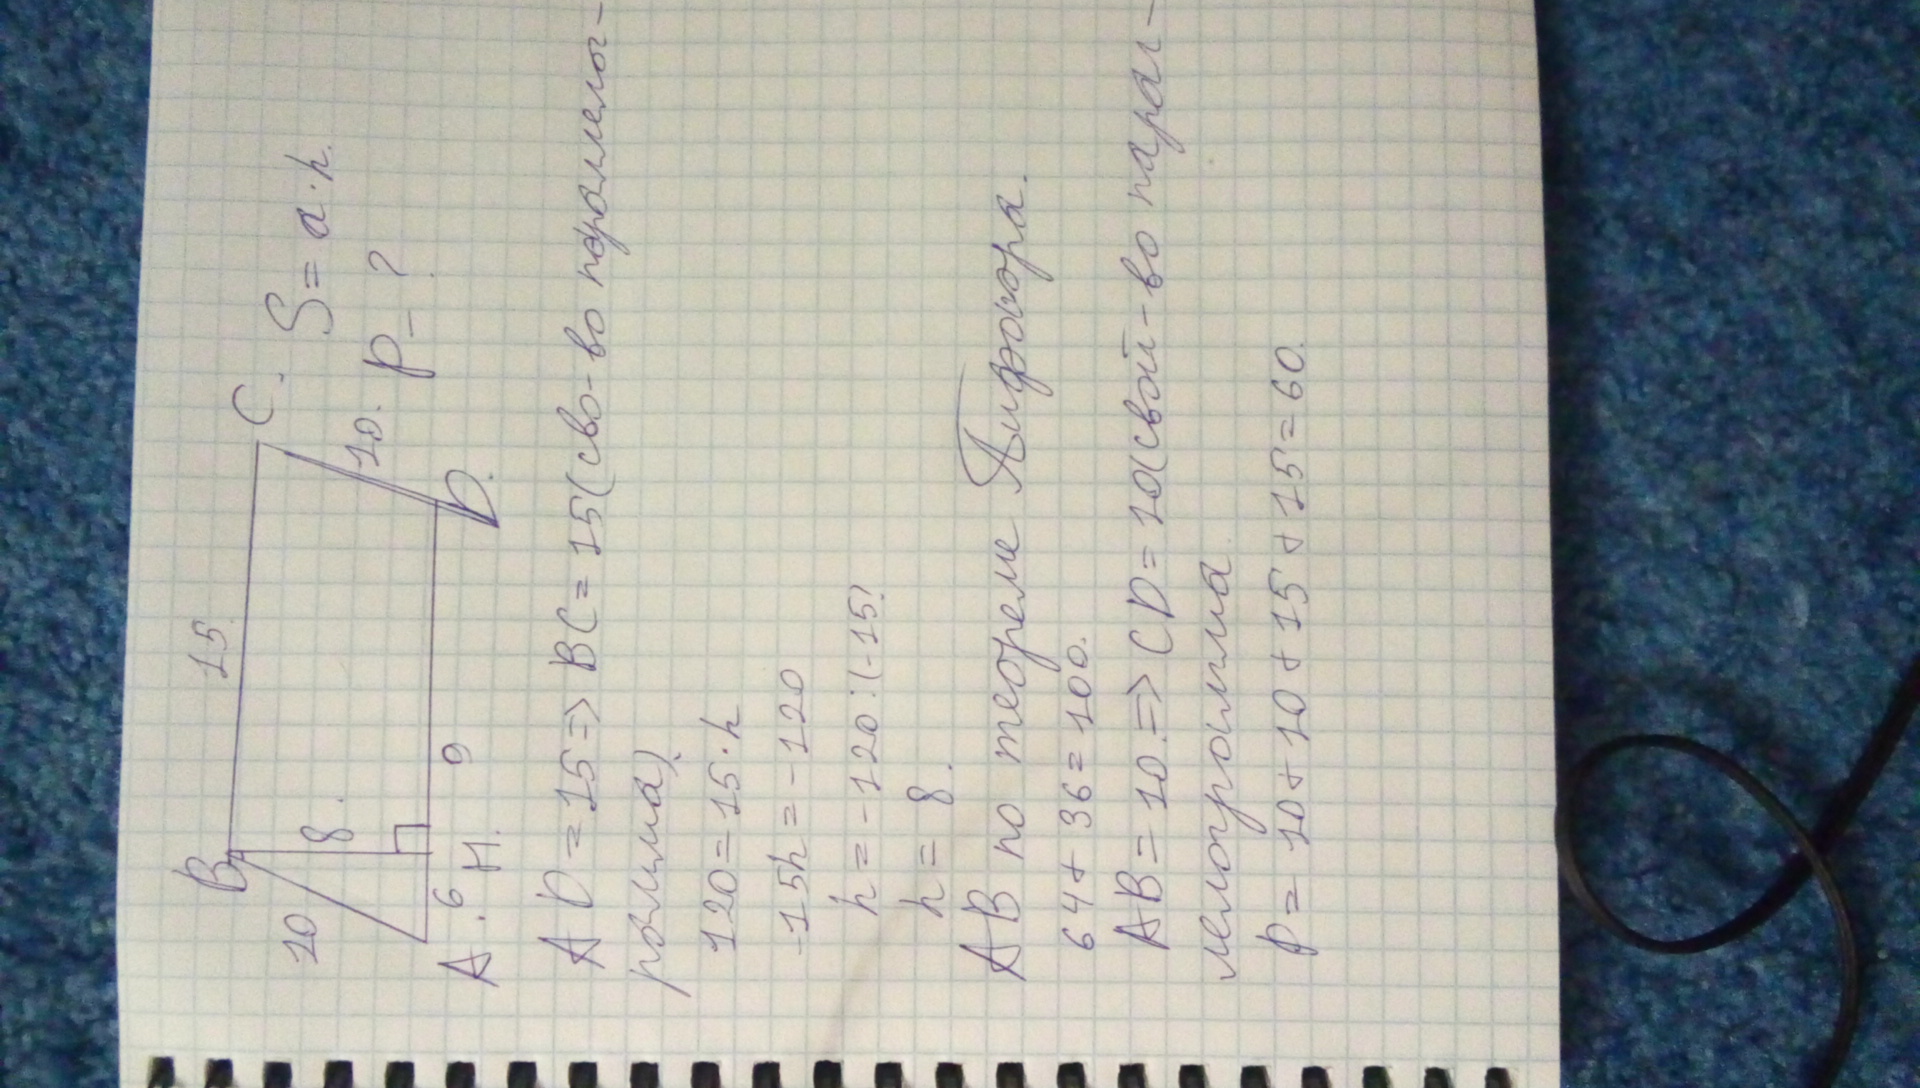 15.
B C. S=a·h.
10 8. 10. P-?
A. 6 H. 9 D.
AD=15=>BC=15(сво-во параллело-
рамма).
120=15·h
-15h=-120
h=-120:(-15)
h=8.
AB по теореме Пифагора.
64+36=100.
AB=10.=>CD=10(свой-во парал-
лелограмма
P=10+10+15+15=60.